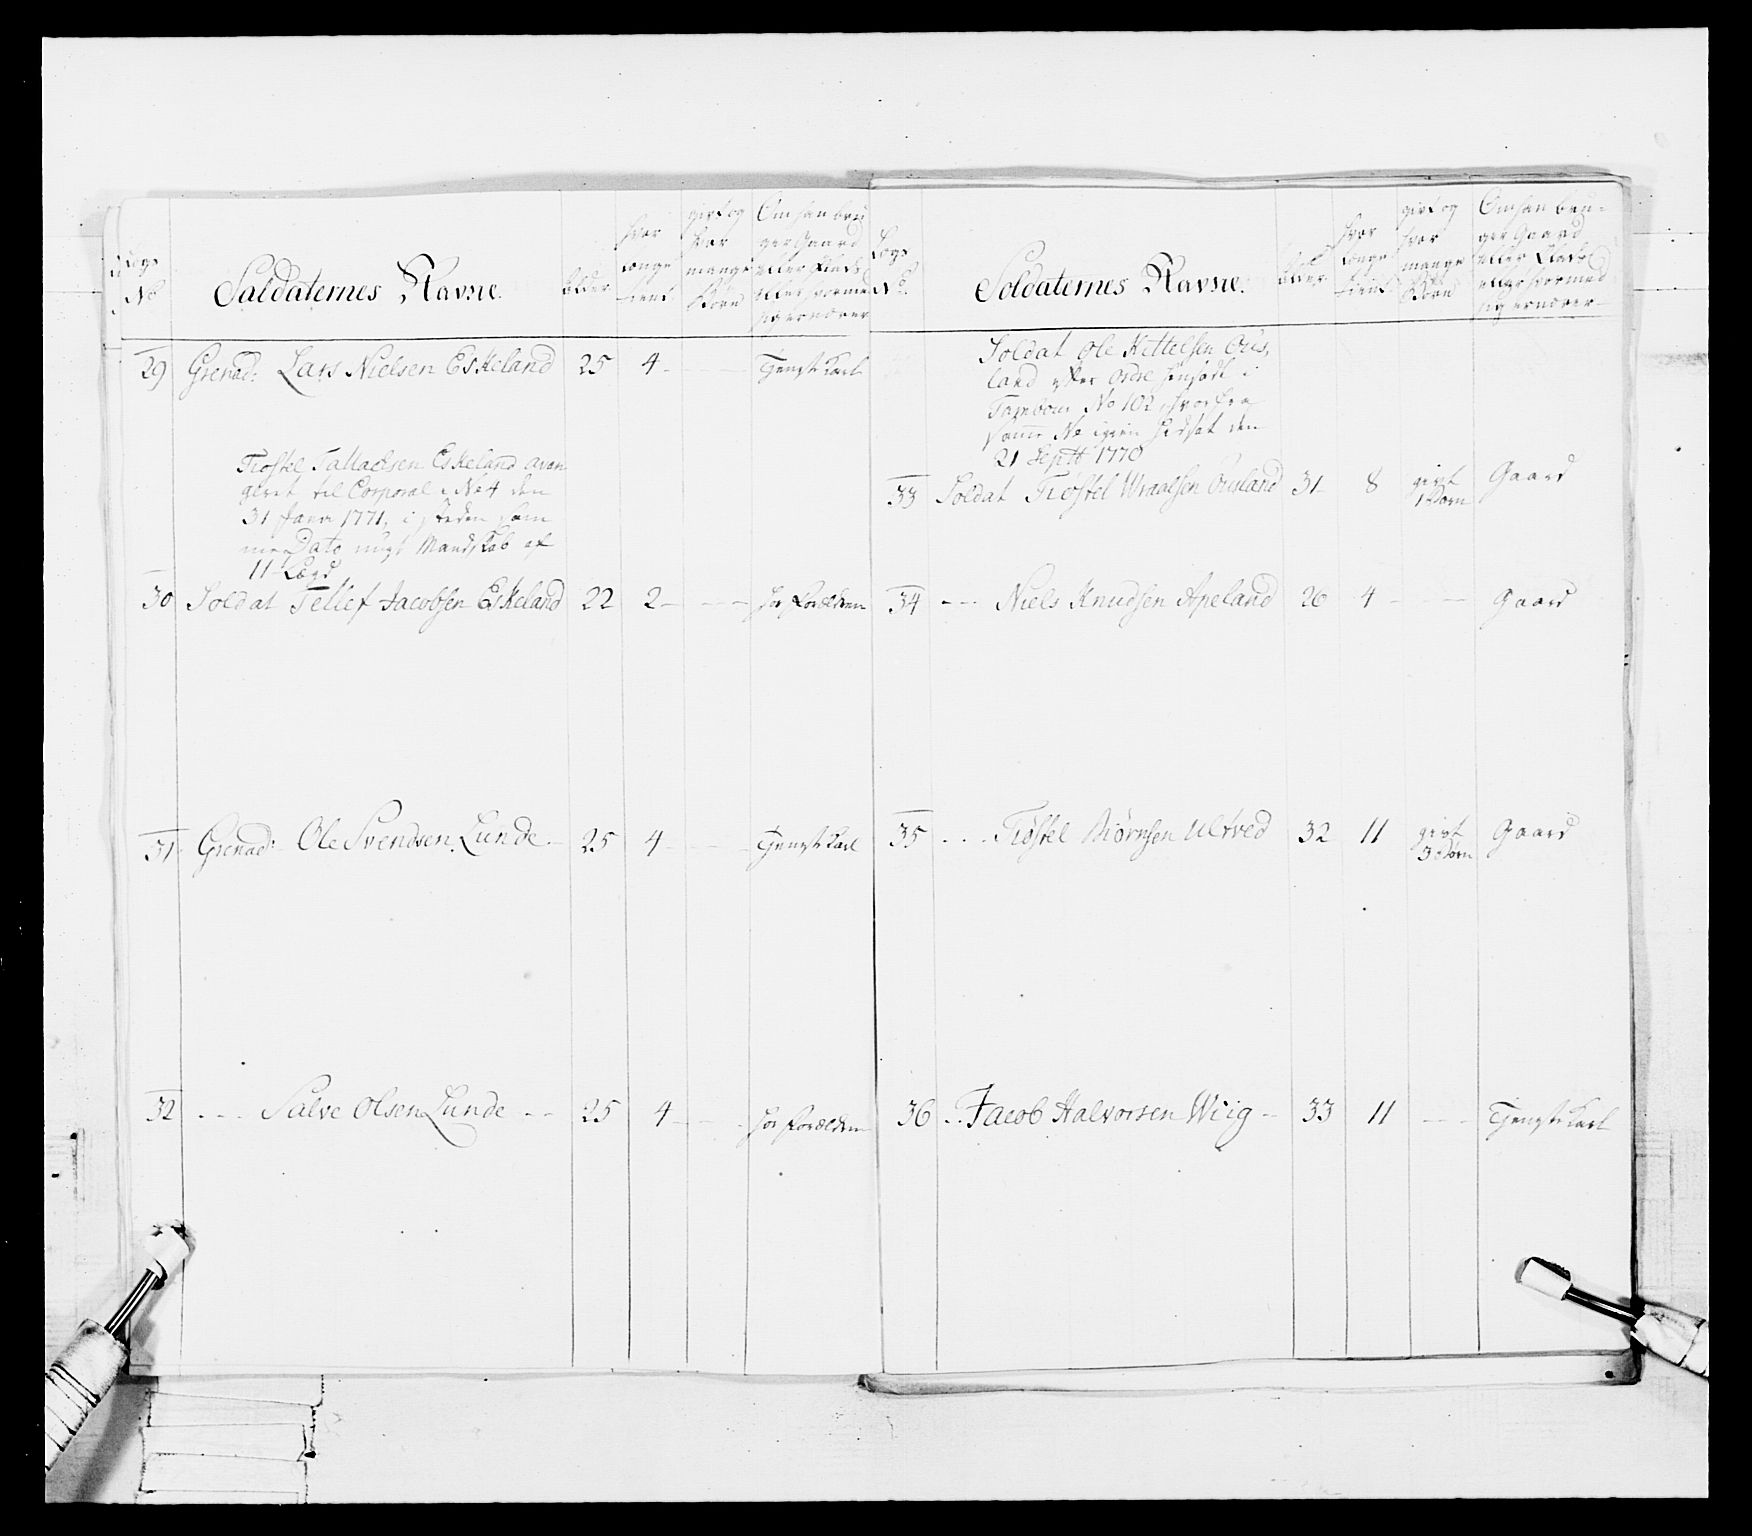 Lægs No
Soldaternes Navne.
Alder
hvor længe tient
givt og hvor mange Børn
Om han bru
ger Gaard
eller Plads
eller hvormed
sig ernærer
29 Grenad: Lars Nielsen Eskeland 25 4 - - - Tjenstkarl
Tiostel Tallachsen Eskeland avan
geret til Corporal i No 4 den
31 Janv 1771, i steden sam
me Dato nügt Mandskab af
11 Lægd
30 Soldat Tellef Jacobsen Eskeland 22 2 - - - hos Forældrene
31 Grenad: Ole Svendsen Lunde - 25 4 - - - Tjenstkarl
32 - - - Salve Olsen Lunde - - 25 4 - - - hos Forældrene
Lægs No.
Soldaternes Navne.
Alder
hvor længe tient
givt og hvor mange Børn
Om han bru-
ger Gaard
eller Plads
eller hvormed
sig ernærer
Soldat Ole Kittelsen Ous,
land efter ordre hensadt i
Tambour No 102, hvorfra
samme No igien hidsat den
21 Septr 1770
33 Soldat Tiostel Wraalsen Ousland 31 8 givt 1 Barn Gaard
34 - - - Niels Knudsen Apeland 26 4 - - Gaard
35 - - - Tiøstel Biørnsen Ultved 32 11 givt 3 Børn Gaard
36 - - Jacob Halvorsen Wiig - 33 11 - - - Tjenstekarl